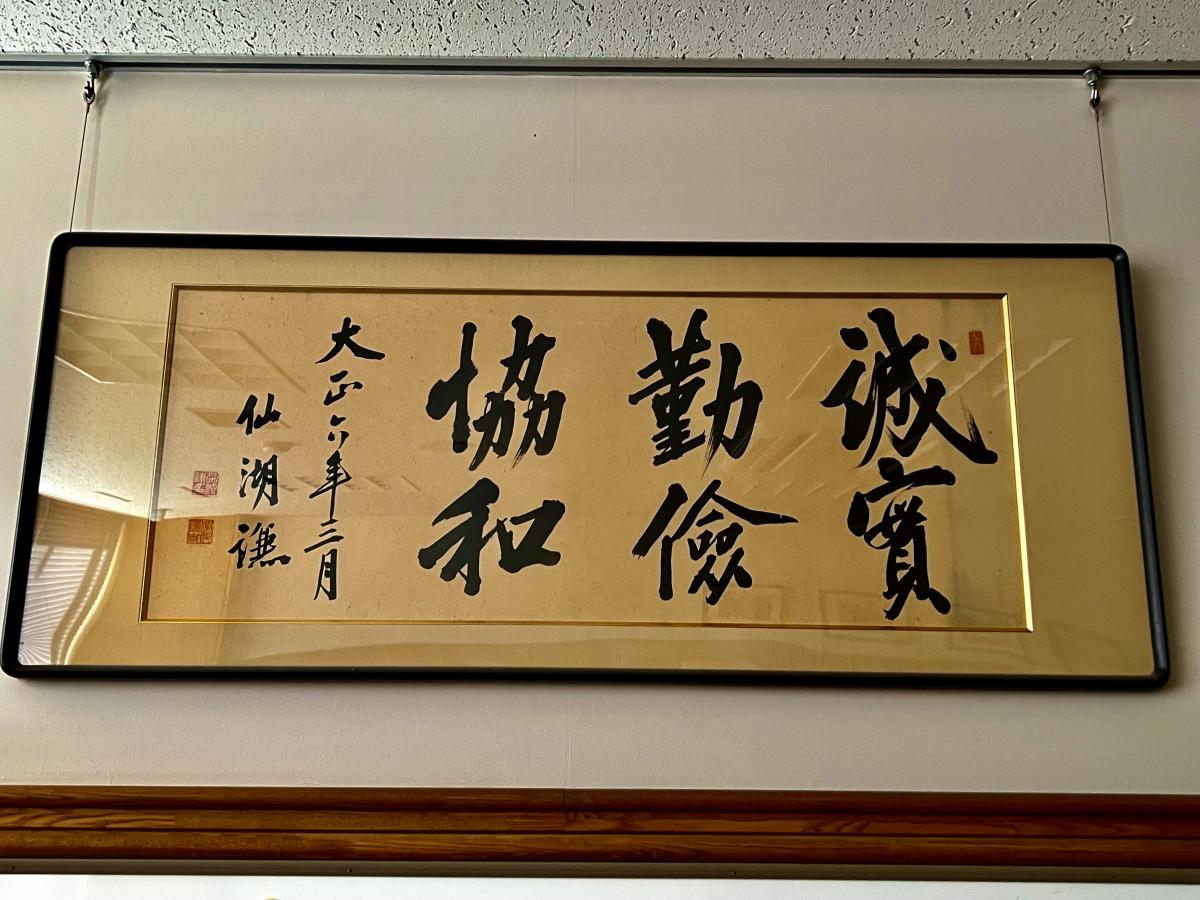 誠實
勤儉
協和
大正六年三月
仙湖謙